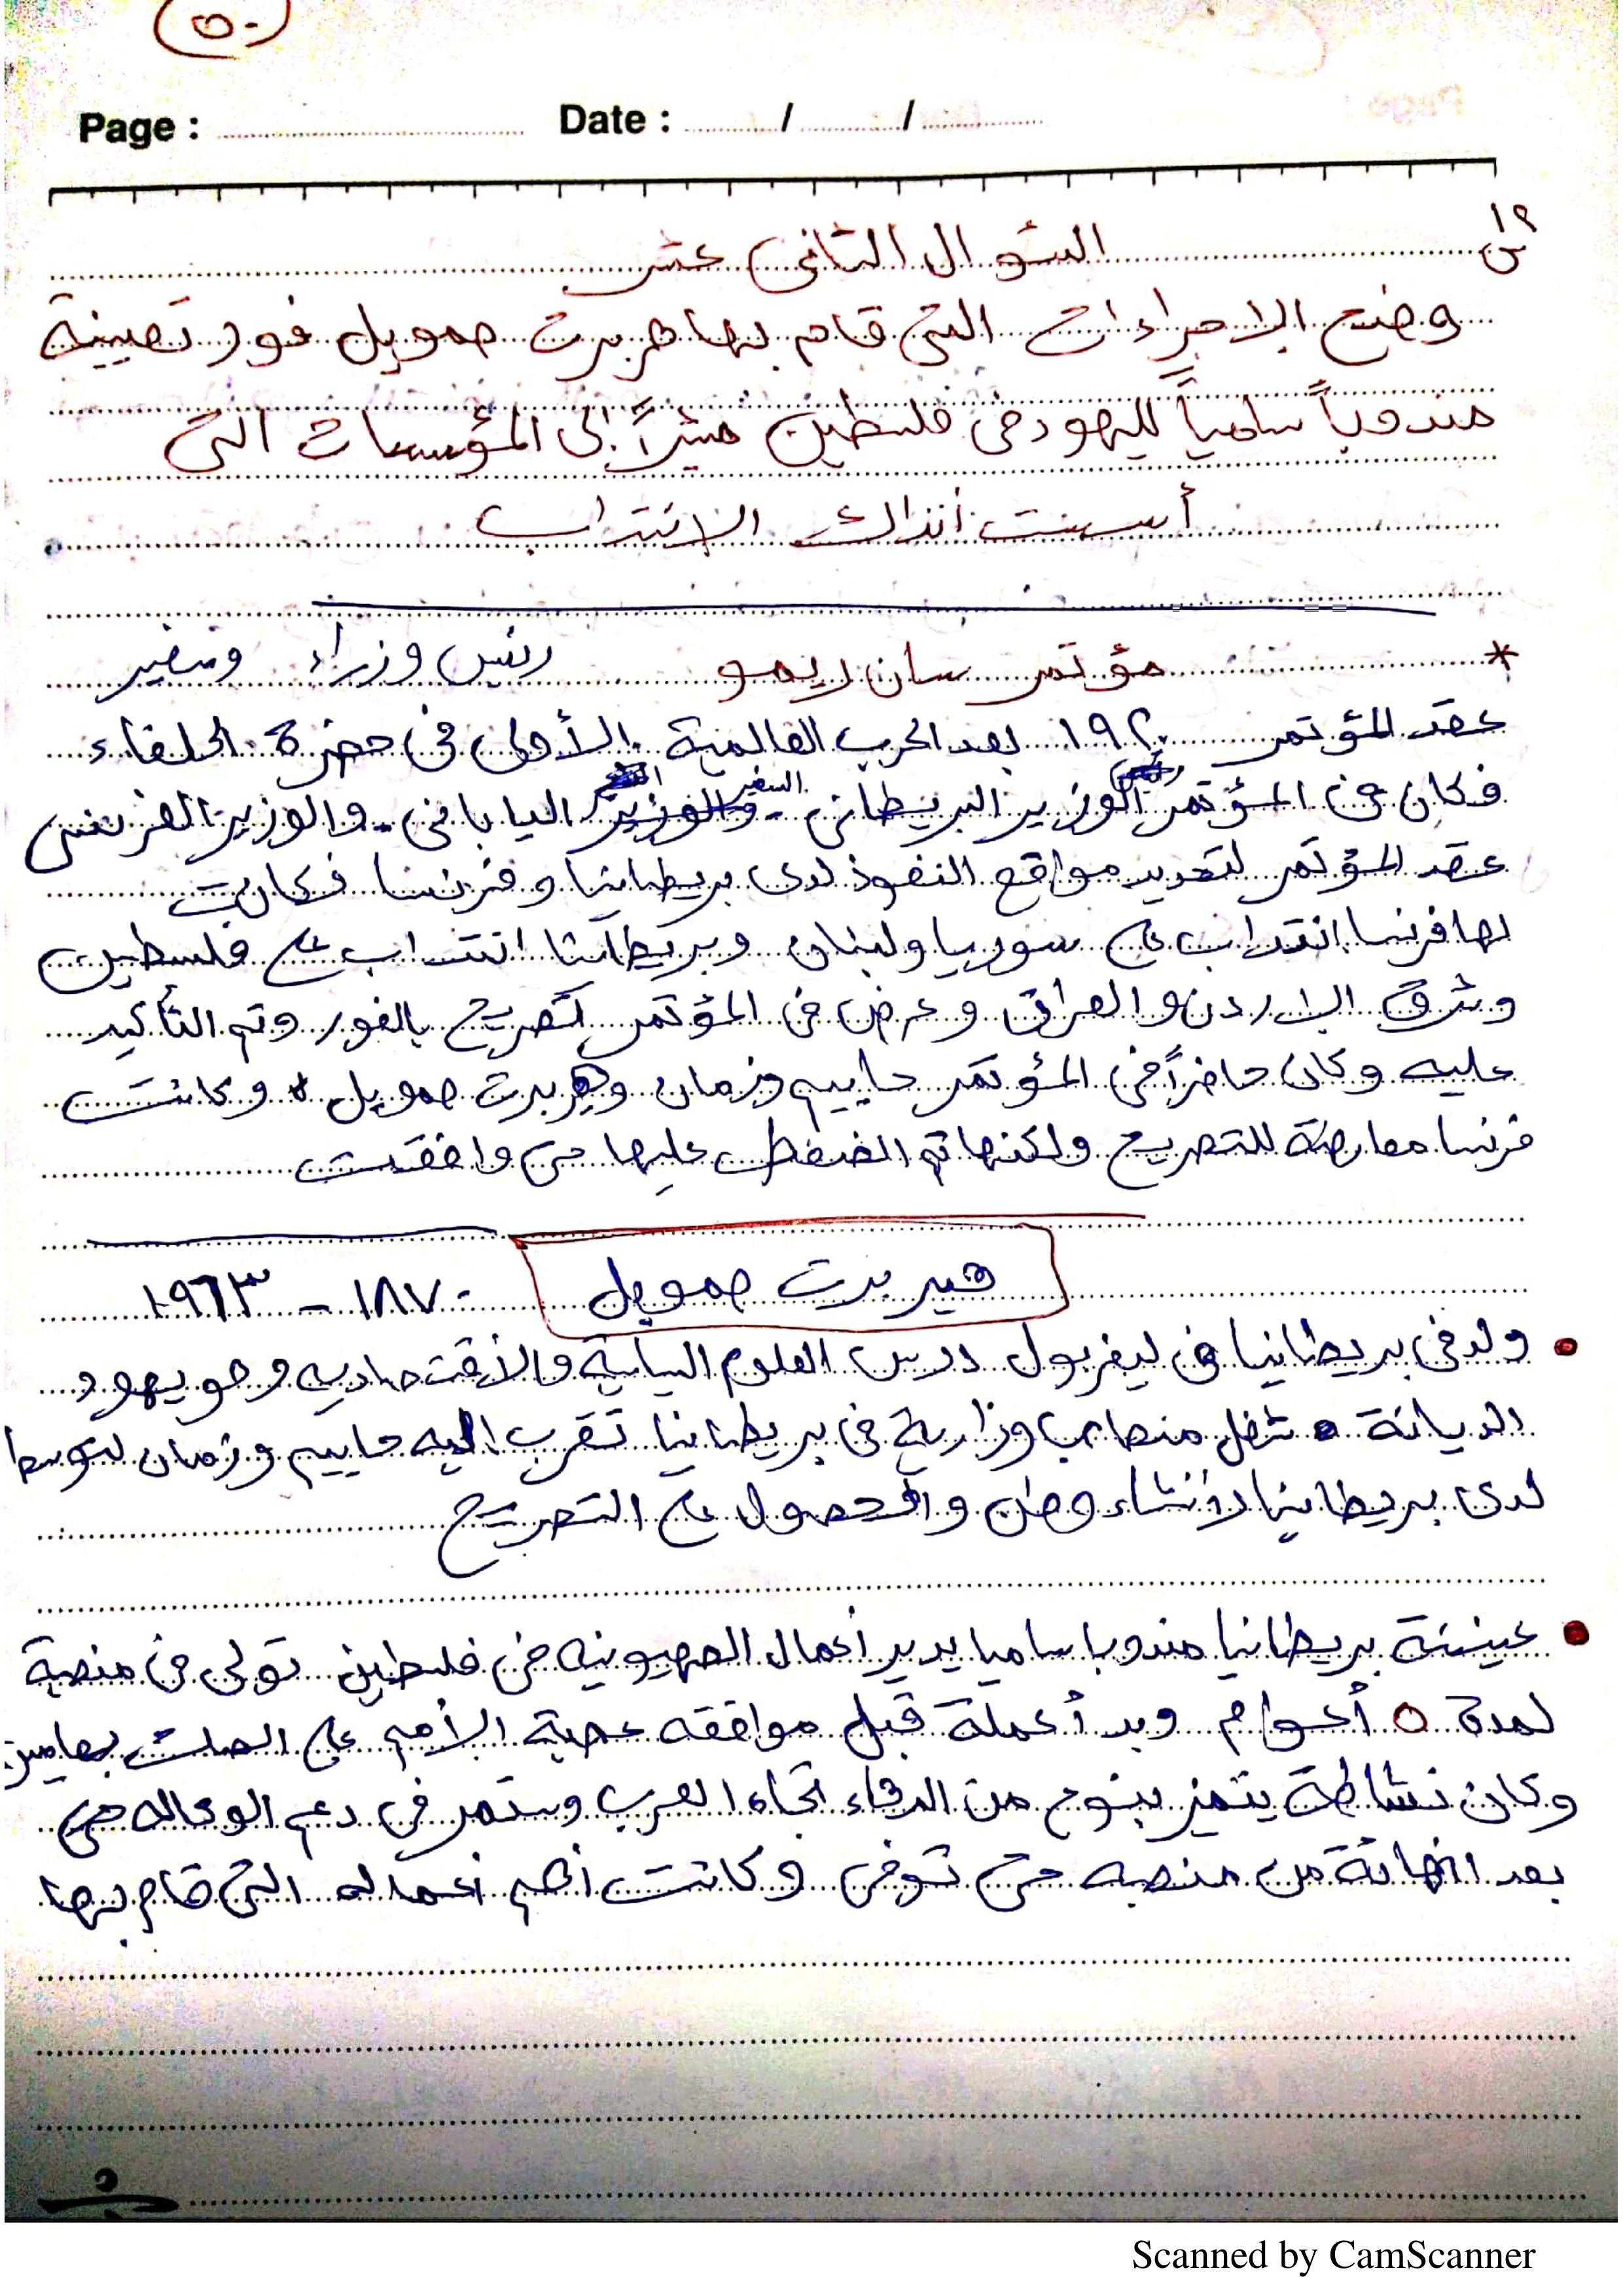 ٥٠
Page : Date : / /
س١٢ السؤال الثاني عشر
وضح الاجراءات التي قام بها هربرت صمويل فور تعيينة
مندوباً سامياً لليهود في فلسطين مشيراً إلى المؤسسات التي
أسست أنذاك الانتداب
* مؤتمر سان ريمو رئيس وزراء وسفير
عقد المؤتمر ١٩٢٠ بعد الحرب العالمية الأولى في حضرة الحلفاء
فكان في المؤتمر الوزير البريطاني - السفير الياباني - والوزير الفرنسي
عقد المؤتمر لتحديد مواقع النفوذ لدى بريطانيا وفرنسا فكانت
لها فرنسا انتداب على سوريا ولبنان وبريطانيا انتداب على فلسطين
وشرق الاردن والعراق وعرض في المؤتمر تصريح بالفور وتم التأكيد
عليه وكان حاضراً في المؤتمر حاييم وزمان وهربرت صمويل وكانت
فرنسا معارضة للتصريح ولكنها تم الضغط عليها حتى وافقت
هيربرت صمويل ١٨٧٠ - ١٩٦٣
• ولد في بريطانيا في ليفربول درس العلوم السياسية والأقتصاديه وهو يهود
الديانة شغل مناصب وزارية في بريطانيا تقرب اليه حاييم وزمان لتوسط
لدى بريطانيا لأنشاء وطن والحصول على التصريح
• عينتة بريطانيا مندوبا ساميا يدير أعمال الصهيونيه في فلسطين تولى في منصبة
لمدة ٥ أعوام وبدأ عملة قبل موافقه عصبة الأمم على الصك بعامين
وكان نشاطة يتميز بنوع من الدهاء اتجاه العرب وستمر في دعم الوكاله حتى
بعد انهائة من منصبه حتى توفى وكانت أهم أعماله التي قام بها
Scanned by CamScanner